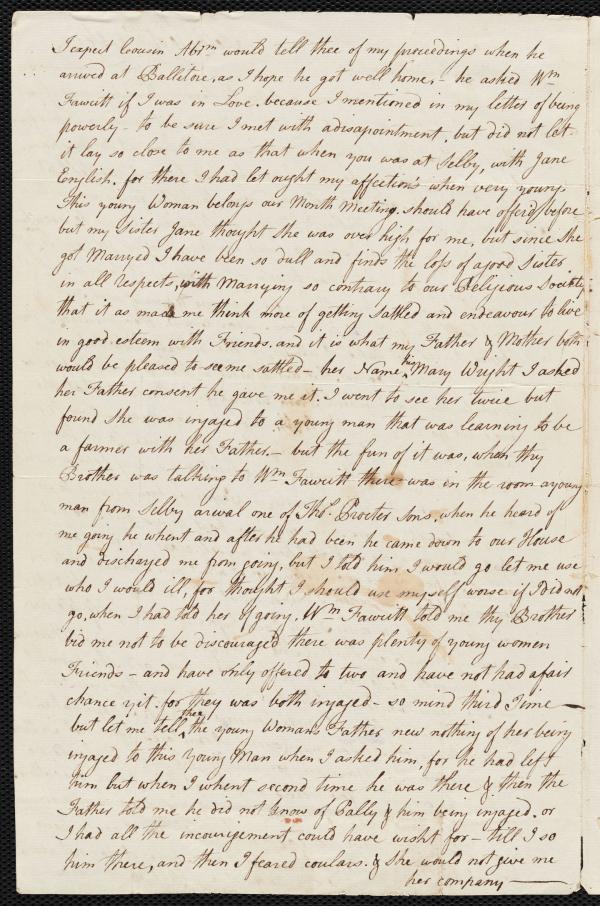 I expect Cousin Abrm would tell thee of my proceedings when he
arived at Ballitore, as I hope he got well home, - he asked Wm
Fawcitt if I was in Love. because I mentioned in my letter of being
powerly - to be sure I met with a disapointment. but did not let
it lay so close to me as that when you was at Selby, with Jane
English. for there I had let ought my affections when very young.
This young Woman belongs our Month Meeting. should have offerd before
but my Sister Jane thought She was over high for me, but since she
got Marryed I have been so dull and finds the loss of a good Sister
in all respects, with Marrying so contrary to our Religious Society
that it as made me think more of getting Sattled and endeavour to live
in good esteem with Friends. and it is what my Father & Mother both
would be pleased to see me sattled - her Name his Mary Wright I asked
her Father consent he gave me it. I went to see her twice but
found She was ingaged to a young man that was learning to be
a farmer with her Father, - but the fun of it was, when thy
Brother was talking to Wm Fawcitt there was in the room a young
man from Selby arival one of Thos. Procter sons, when he heard of
me going he whent and after he had been he came down to our House
and discharged me from going, but I told him I would go let me use
who I would ill, for thought I should use myself worse if I did not
go, when I had told her of going, Wm Fawcitt told me thy Brother
bid me not to be discouraged there was plenty of young women
Friends - and have only offered to two and have not had a fair
chance yit. for they was both ingaged - so mind third Time -
but let me tell thee the young Woman's Father new nothing of her being
ingaged to this young Man when I asked him, for he had left
him but when I whent second time he was there & then the
Father told me he did not know of Pally & him being ingaged. or
I had all the incourgement could have wisht for - till I so
him there, and then I feared coulars. & She would not give me
her company -